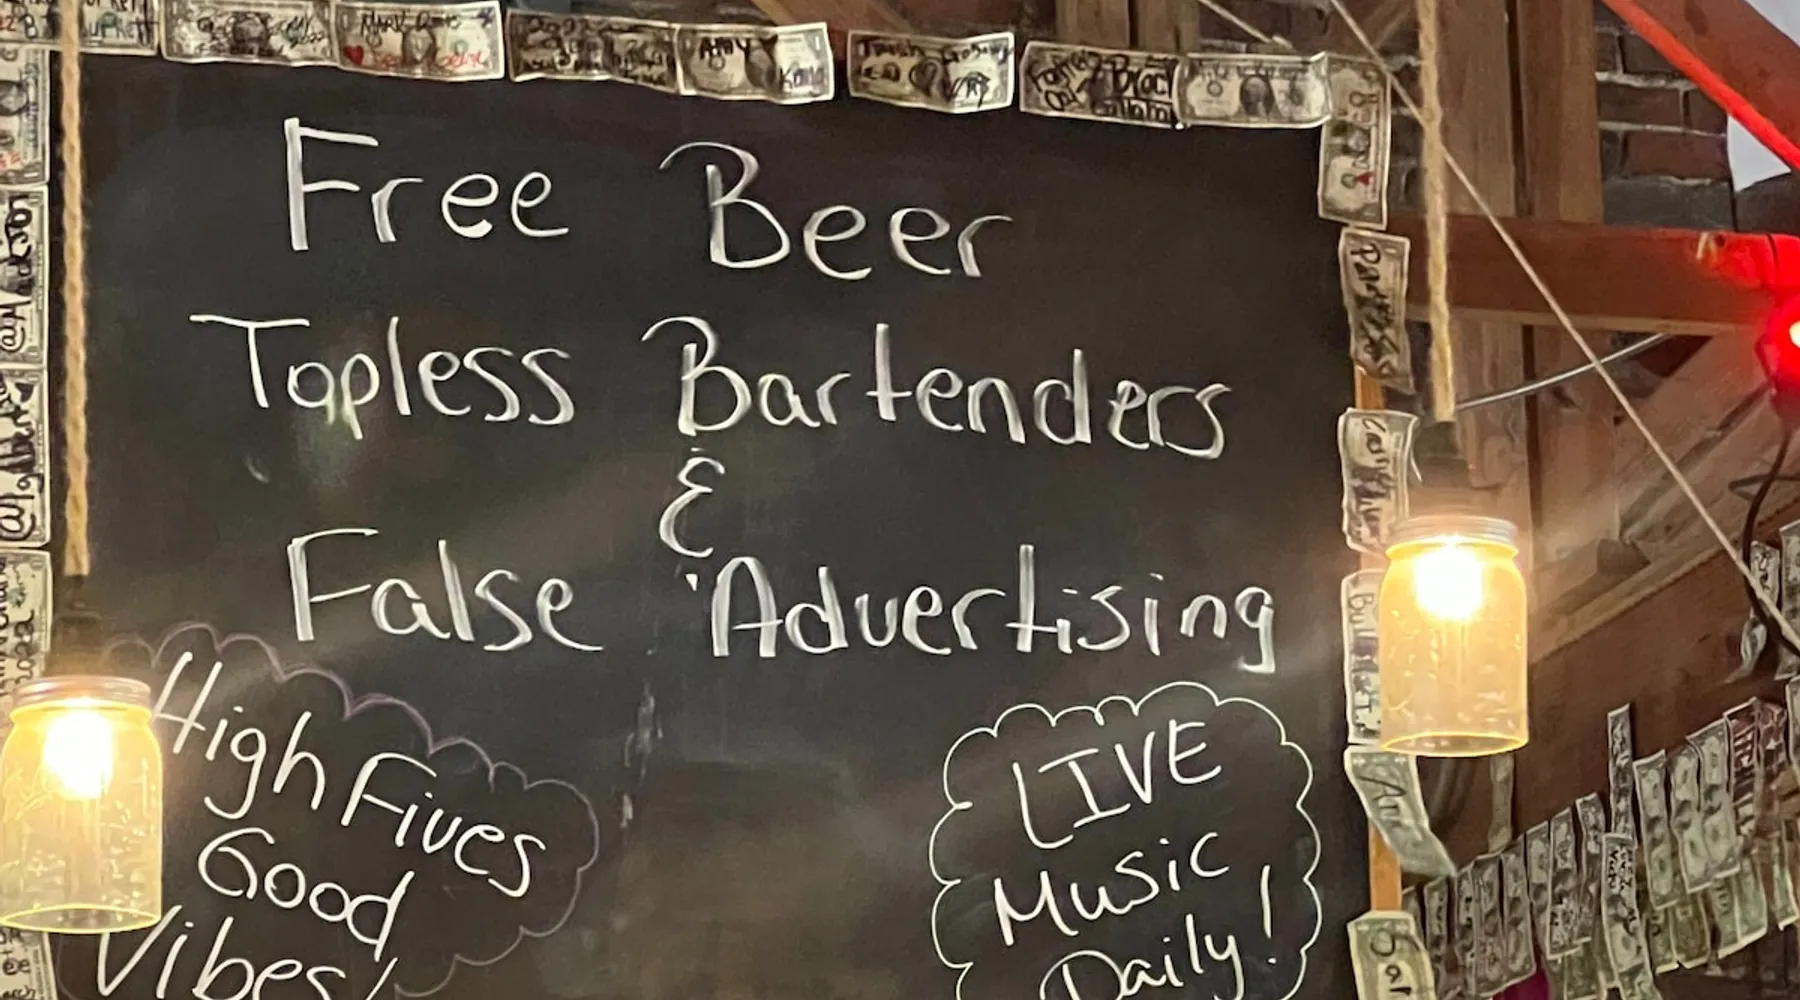 Free Beer
Topless Bartenders
&
False Advertising
High Fives
Good
Vibes!
LIVE
Music
Daily!
AMY